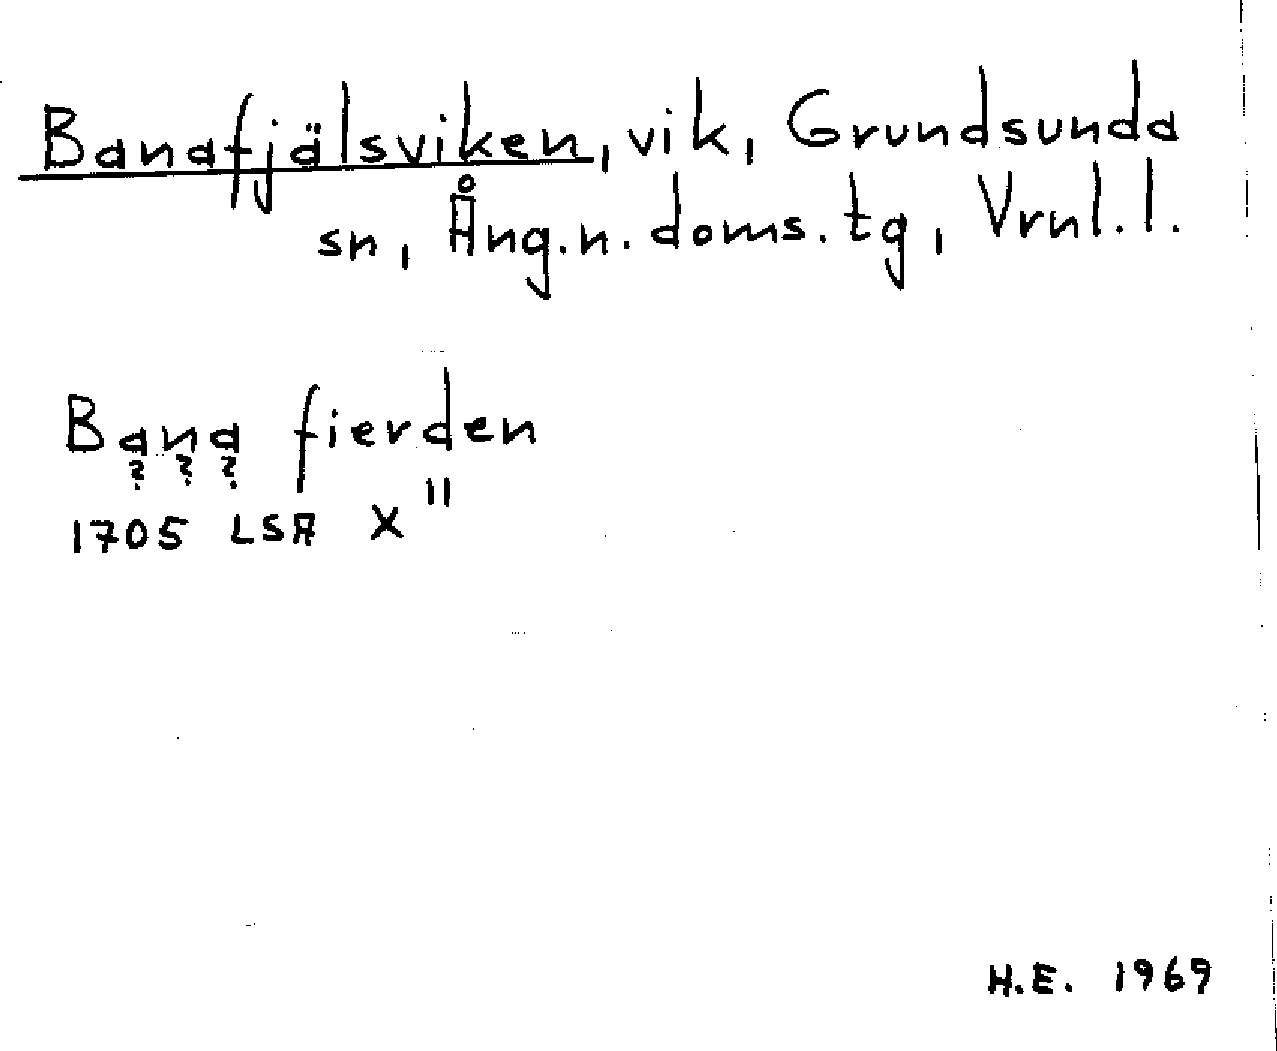 Banafjälsviken, vik, Grundsunda
sn, Ång.n. doms. tg, Vrnl. l.
Bana fierden
? ? ?
1705 LSA X"
H.E. 1969